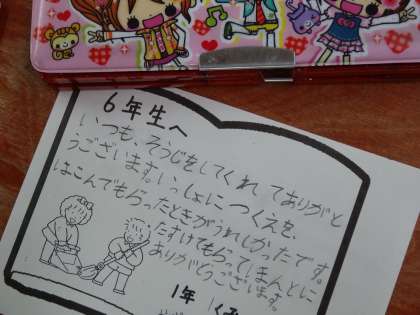 6年生へ
いつも、そうじをしてくれてありがと
うございます。いっしょにつくえを、
はこんでもらったときがうれしかったです。
たすけてもらってほんとに
ありがとうございます。
1年